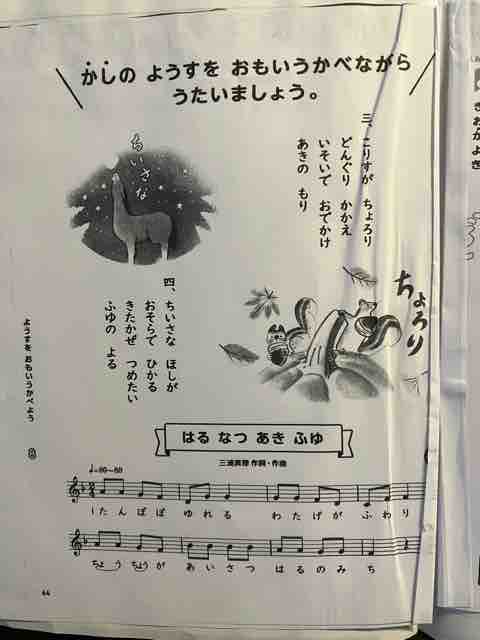 かしの ようすを おもいうかべながら
うたいましょう。
三、こりすが ちょろり
どんぐり かかえ
いそいで おでかけ
あきの もり
ちいさな
ちょろり
四、ちいさな ほしが
おそらで ひかる
きたかぜ つめたい
ふゆの よる
ようすを おもいうかべよう
はる なつ あき ふゆ
作詞・作曲
♩=80～80
1 たんぽぽ ゆれる わたげが ふわり
ちょうちょうが あいさつ はるのみち
44